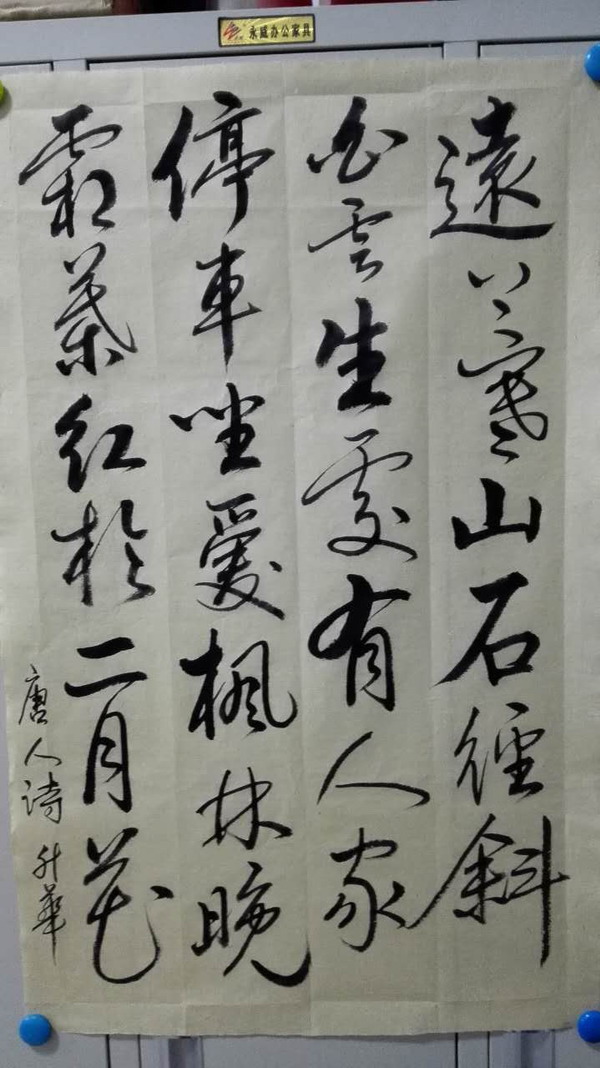 永威办公家具
遠上寒山石徑斜
白雲生處有人家
停車坐愛楓林晚
霜葉紅於二月花
唐人诗 升華